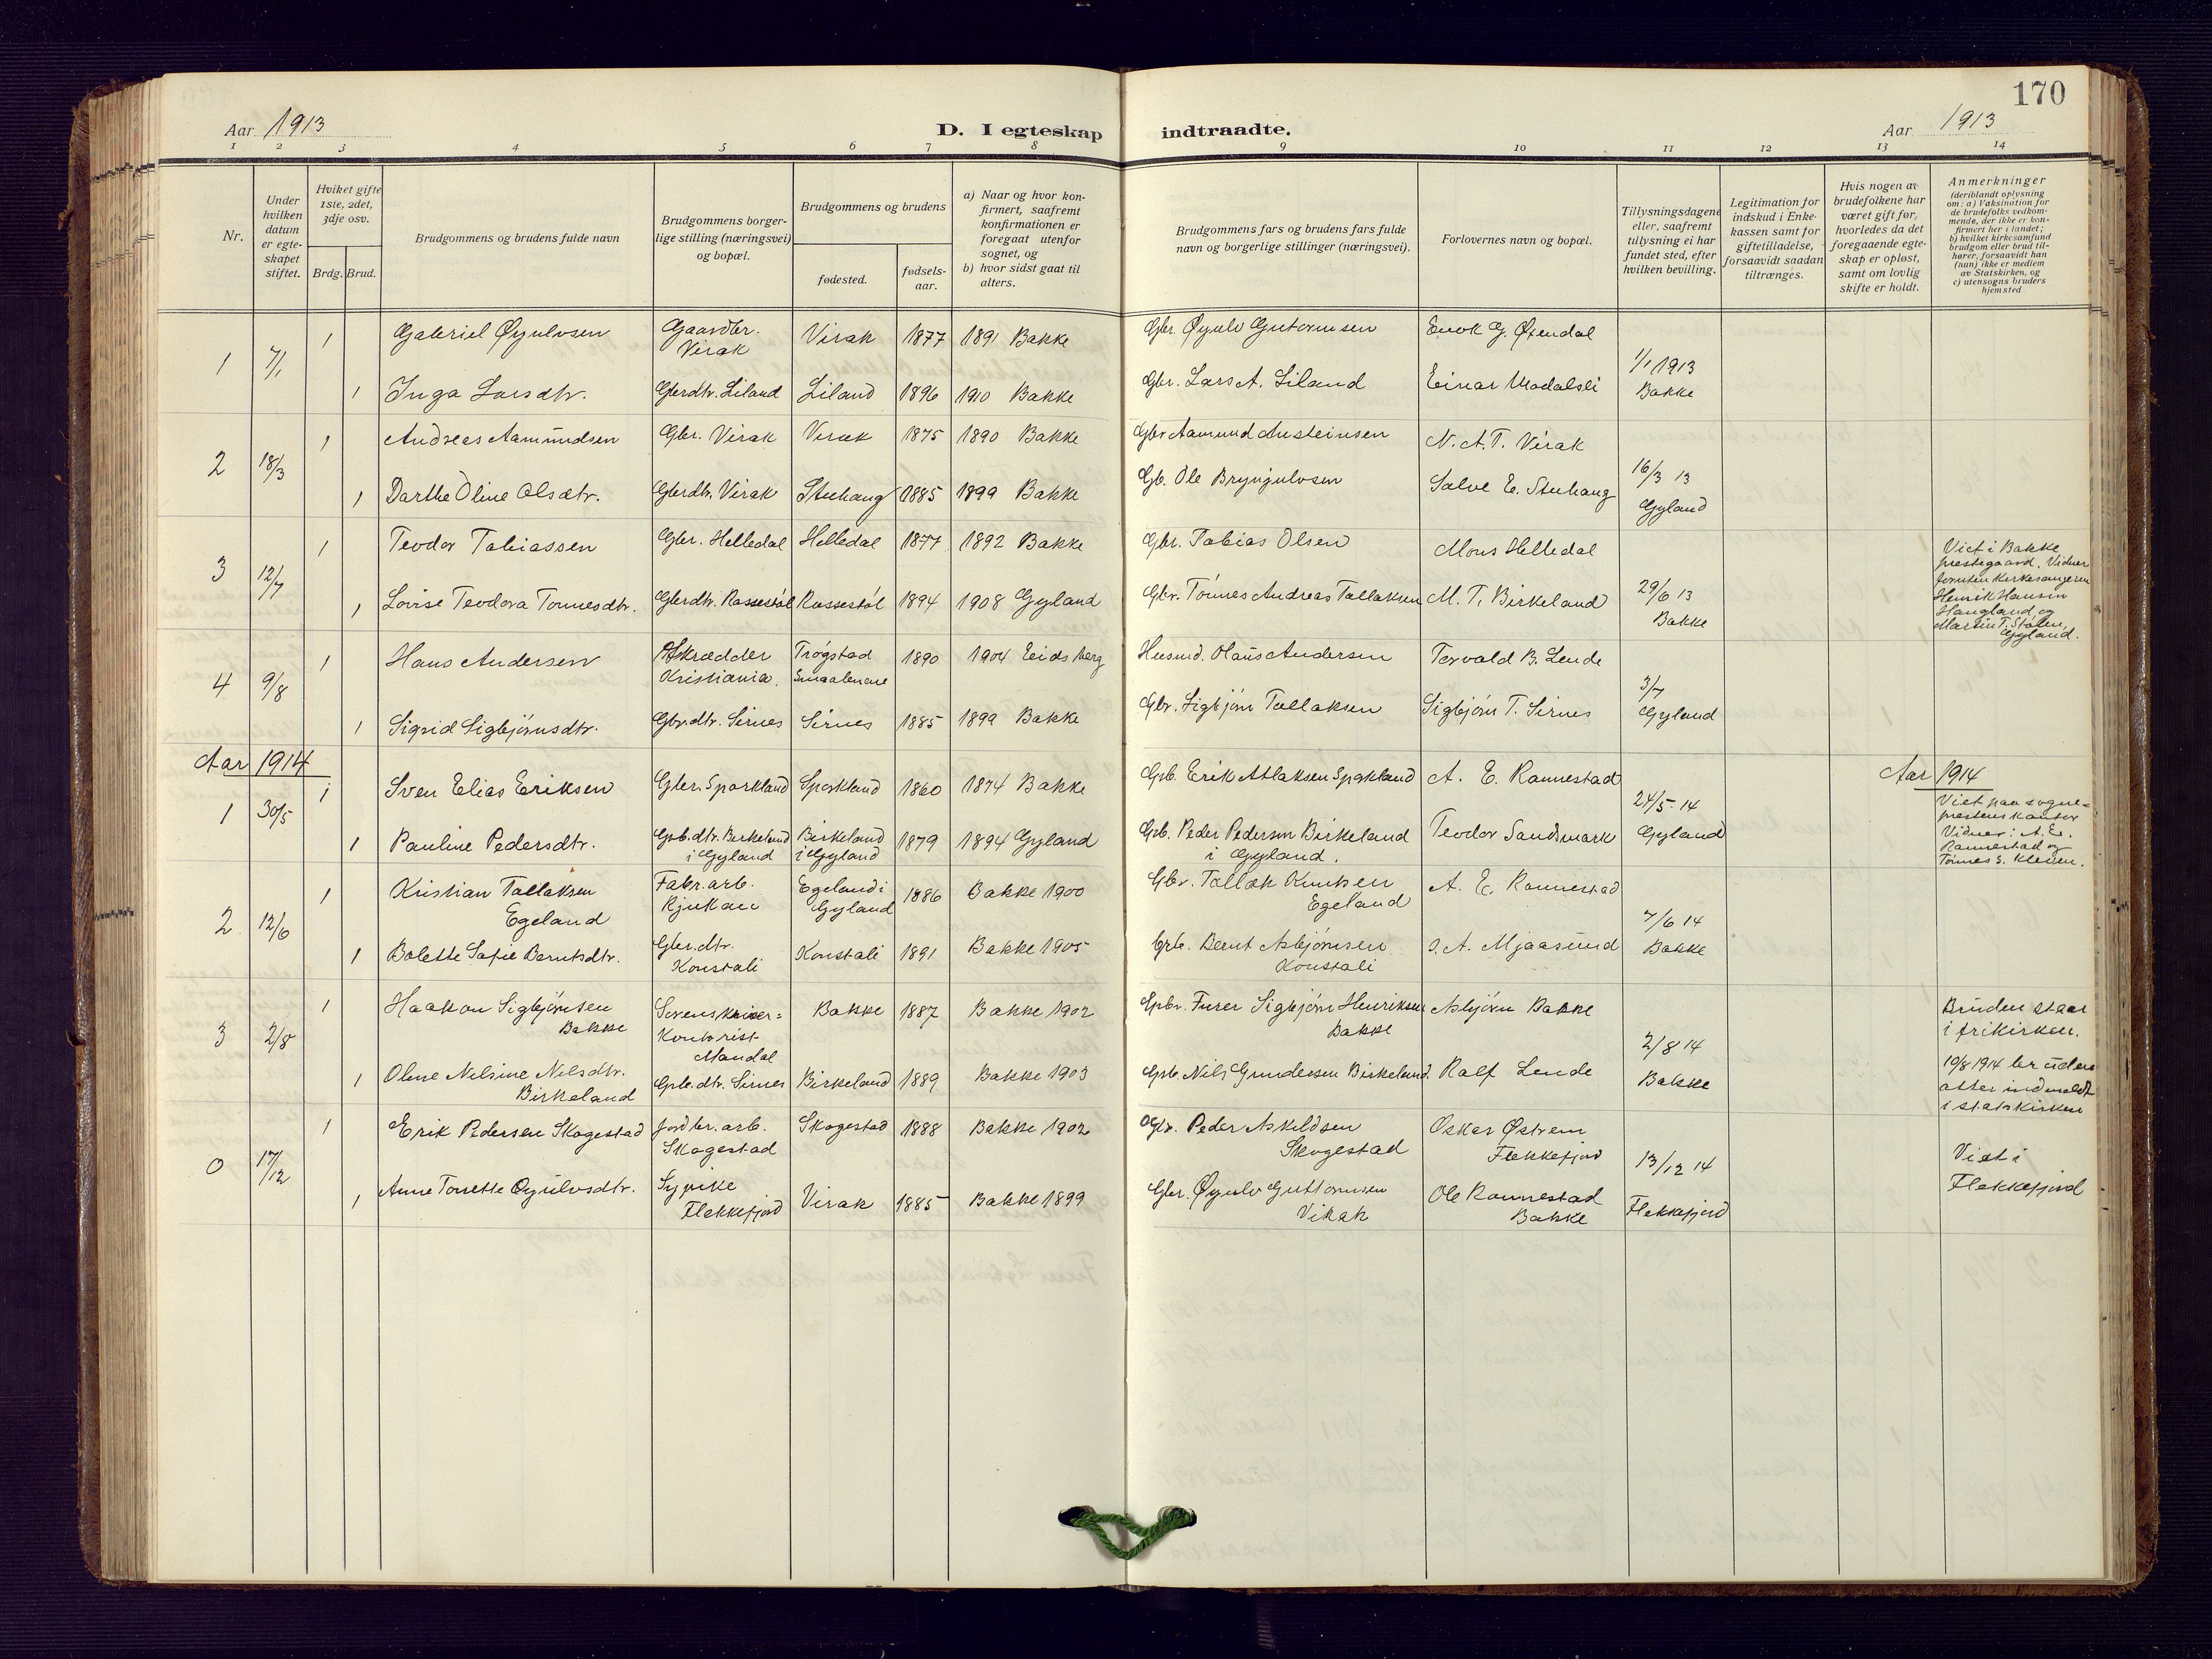 170
Aar 1913
D. I egteskap indtraadte.
Aar 1913
1 2 3 4 5 6 7 8 9 10 11 12 13 14
Nr.
Under
hvilken
datum
er egte-
skapet
stiftet.
Hviket gifte
1ste, 2det,
3dje osv.
Brdg. Brud.
Brudgommens og brudens fulde navn
Brudgommens borger-
lige stilling (næringsvei)
og bopæl.
Brudgommens og brudens
fødested.
fødsels-
aar.
a) Naar og hvor kon-
firmert, saafremt
konfirmationen er
foregaat utenfor
sognet, og
b) hvor sidst gaat til
alters.
Brudgommens fars og brudens fars fulde
navn og borgerlige stillinger (næringsvei).
Forlovernes navn og bopæl.
Tillysningsdagene
eller, saafremt
tillysning ei har
fundet sted, efter
hvilken bevilling.
Legitimation for
indskud i Enke-
kassen samt for
giftetilladelse,
forsaavidt saadan
tiltrænges.
Hvis nogen av
brudefolkene har
været gift før,
hvorledes da det
foregaaende egte-
skap er opløst,
samt om lovlig
skifte er holdt.
Anmerkninger
(deriblandt oplysning
om: a) Vaksination for
de brudefolks vedkom-
mende, der ikke er kon-
firmert her i landet;
b) hvilket kirkesamfund
brudgom eller brud til-
hører, forsaavidt han
(hun) ikke er medlem
av Statskirken, og
c) utensogns bruders
hjemsted
1 7/1
1 Gabriel Øyulvsen Gaardbr. Virak Virak 1877 1891 Bakke Gbr. Øyulv Gutormsen Enok G. Øxendal
1/1 1913
Bakke
1 Inga Larsdtr. Gbrdtr. Liland Liland 1896 1910 Bakke Gbr. Lars A. Liland Einar Modalsli
2 18/3
1 Andreas Aamundsen Gbr. Virak Virak 1875 1890 Bakke Gbr Aamund Austeinsen N. A. T. Virak
16/3 13
Gyland
1 Darthe Oline Olsdtr. Gbrdtr. Virak Stuhaug 1885 1899 Bakke Gb. Ole Bryngulvsen Salve E. Stuhaug
3 12/7
1 Teodor Tobiassen Gbr. Helledal Helledal 1877 1892 Bakke Gbr. Tobias Olsen Mons Helledal
29/6 13
Bakke
1 Lovise Teodora Tonnesdtr. Gbrdtr. Rassestøl Rassestøl 1894 1908 Gyland Gbr. Tönnes Andreas Tallaksen M. T. Birkeland
Viet i Bakke
prestegaard. Vidner
foruten kirkesangeren
Henrik Hansen
Haugland og
Martin T. Stølen,
Gyland.
4 9/8
1 Hans Andersen Skrædder Kristiania. Trøgstad Smaalenene 1890 1904 Eidsberg Husmd. Olaus Andersen Torvald B. Lende
3/7
Gyland
1 Sigrid Sigbjörnsdtr. Gbr.dtr. Sirnes Sirnes 1885 1899 Bakke Gbr. Sigbjörn Tallaksen Sigbjörn T. Sirnes
Aar 1914
Aar 1914
1 30/5
1 Sven Elias Eriksen Gbr. Sparkland Sparkland 1860 1874 Bakke Grb. Erik Atlaksen Sparkland A. E. Rannestad
24/5 14
Gyland
1 Pauline Pedersdtr. Grb.dtr. Birkeland i Gyland Birkeland i Gyland 1879 1894 Gyland Grb. Peder Pedersen Birkeland i Gyland. Teodor Sandsmark
Viet paa sogne-
prestens kontor
Vidner: A. E.
Rannestad og
Tönnes S. Kleven.
2 12/6
1 Kristian Tallaksen Egeland Fabr.arb. Rjukan Egeland i Gyland 1886 Bakke 1900 Gbr. Tallak Knutsen Egeland A. E. Rannestad
7/6 14
Bakke
1 Bolette Sofie Berntsdtr. Gbr.dtr. Konstali Konstali 1891 Bakke 1905 Grb. Bernt Asbjörnsen Konstali S. A. Mjaasund
3 2/8
1 Haakon Sigbjörnsen Bakke Sorenskriver= Kontorist Mandal Bakke 1887 Bakke 1902 Furer Sigbjörn Henriksen Bakke Asbjörn Bakke
2/8 14
Bakke
1 Oline Nilsine Nilsdtr. Birkeland Grb.dtr. Sirnes Birkeland 1889 Bakke 1903 Grb. Nils Gundersen Birkeland. Ralf Lende
Bruden staar
i frikirken.
19/8 1914 bruden
atter indmeldt
i statskirken
0 17/12
1 Erik Pedersen Skogestad Jordbr. arb. Skogestad Skogestad 1888 Bakke 1902 Gbr. Peder Askildsen Skogestad Oskar Østrem Flekkefjord
13/12 14
Flekkefjord
1 Anne Tonette Øyulvsdtr. Sypike Flekkefjord Virak 1885 Bakke 1899 Gbr. Øyulv Guttormsen Virak Ole Rannestad Bakke
Viet i
Flekkefjord